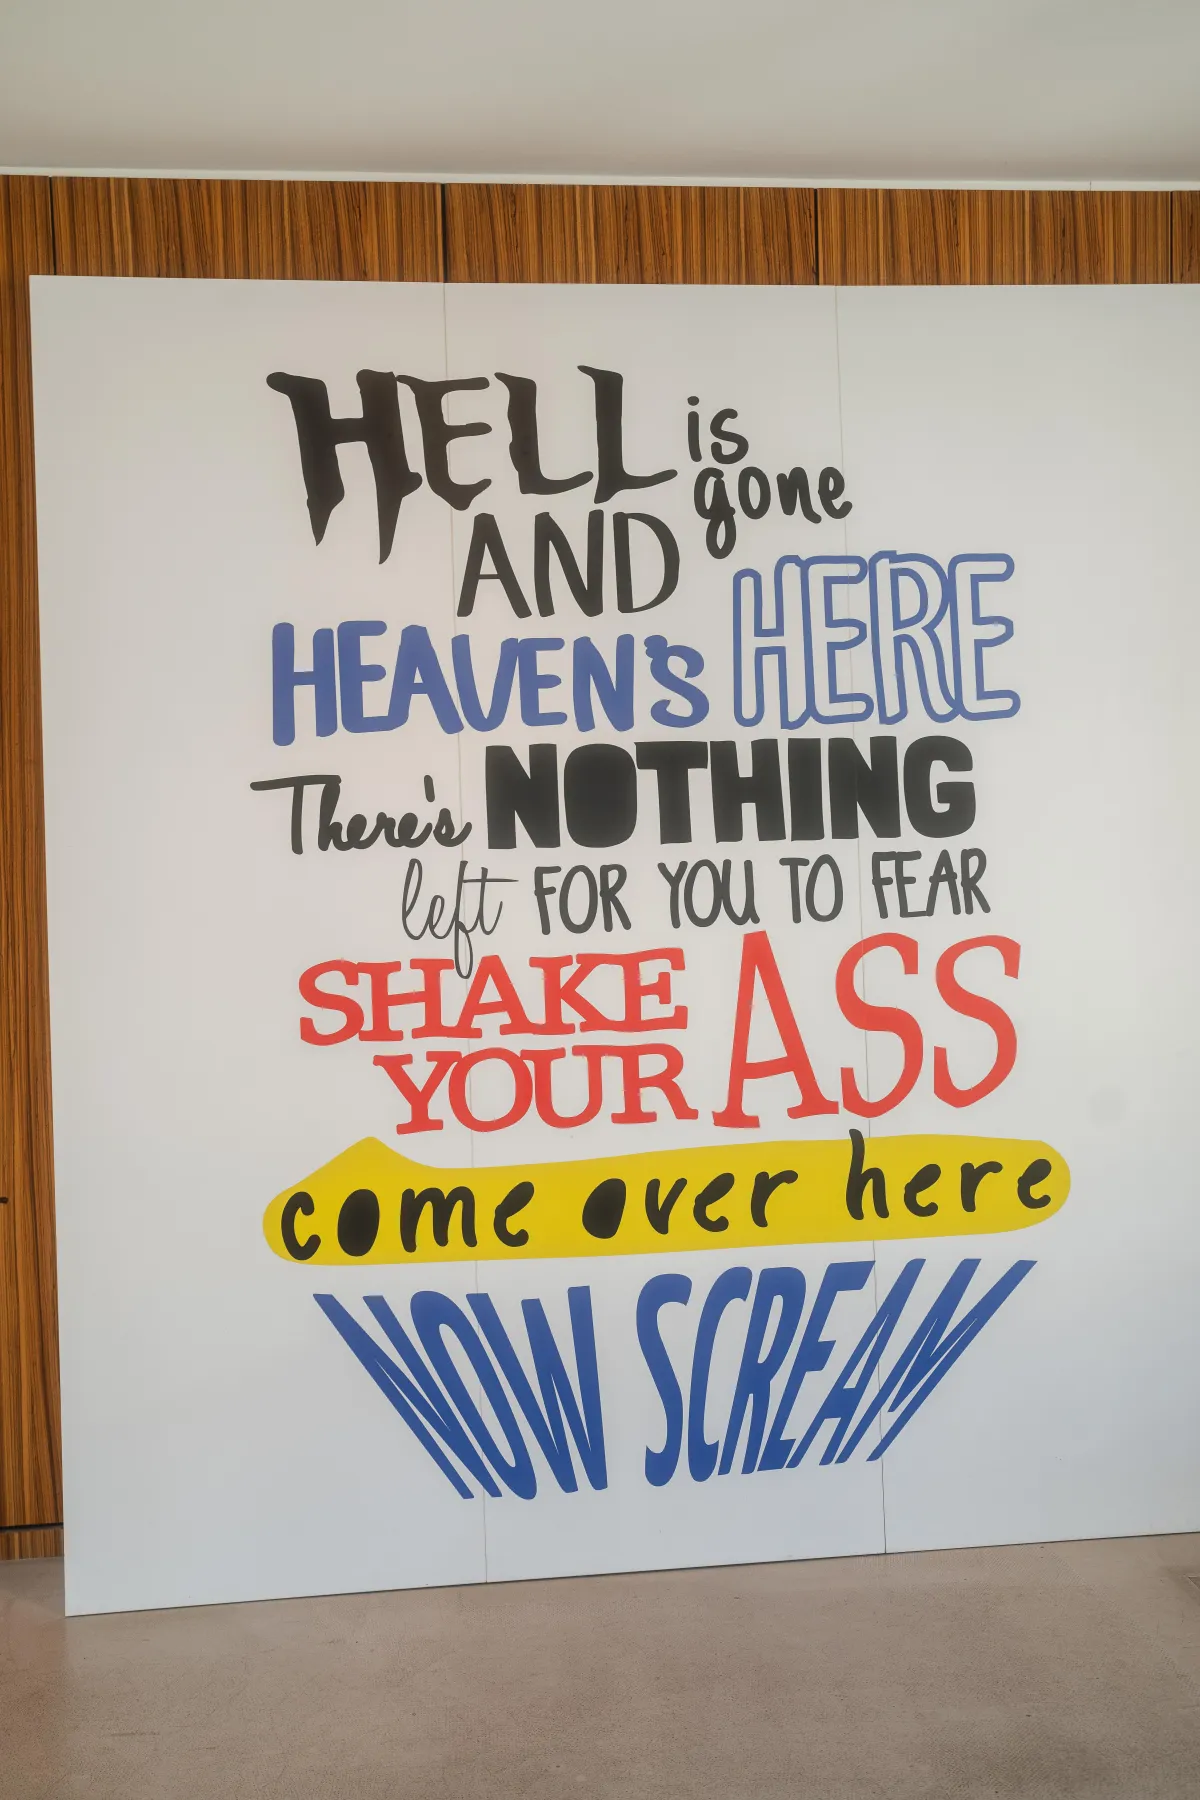 HELL is
gone
AND
HEAVEN'S HERE
There's NOTHING
left FOR YOU TO FEAR
SHAKE
YOUR ASS
come over here
NOW SCREAM